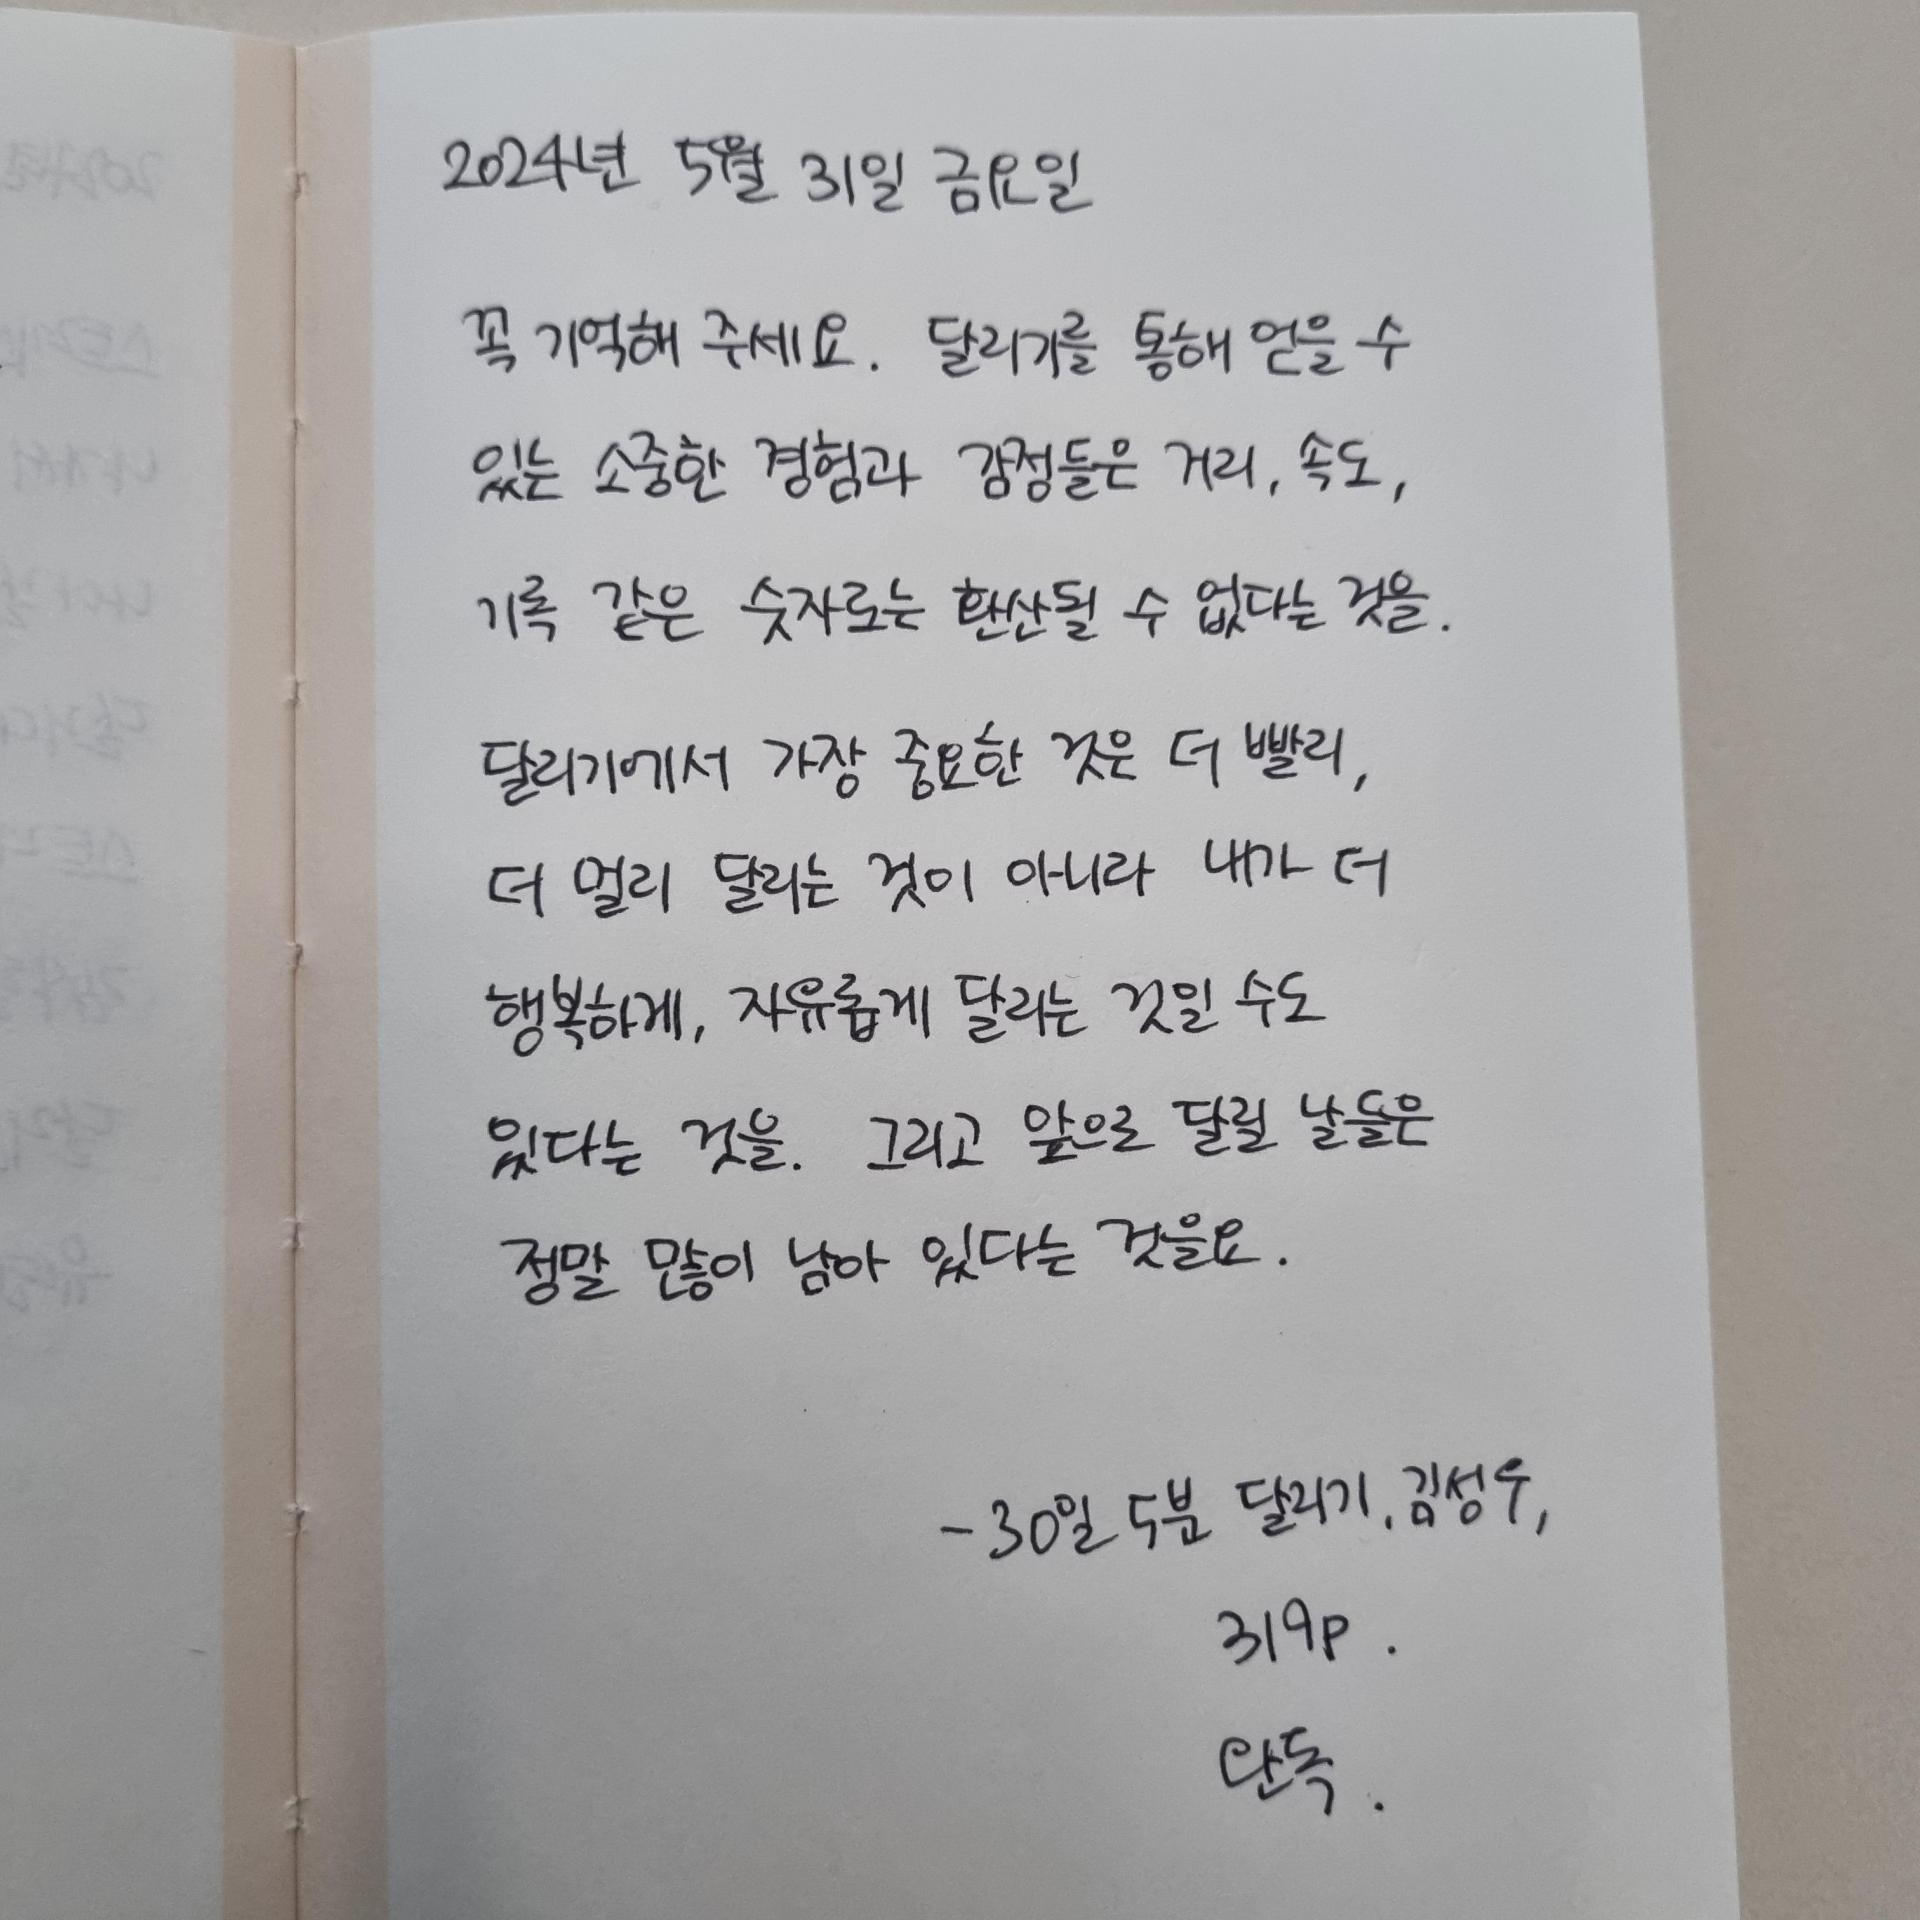 2024년 5월 31일 금요일
꼭 기억해 주세요. 달리기를 통해 얻을 수
있는 소중한 경험과 감정들은 거리, 속도,
기록 같은 숫자로는 환산될 수 없다는 것을.
달리기에서 가장 중요한 것은 더 빨리,
더 멀리 달리는 것이 아니라 내가 더
행복하게, 자유롭게 달리는 것일 수도
있다는 것을. 그리고 앞으로 달릴 날들은
정말 많이 남아 있다는 것을요.
-30일 5분 달리기, 김성우,
319p.
완독.